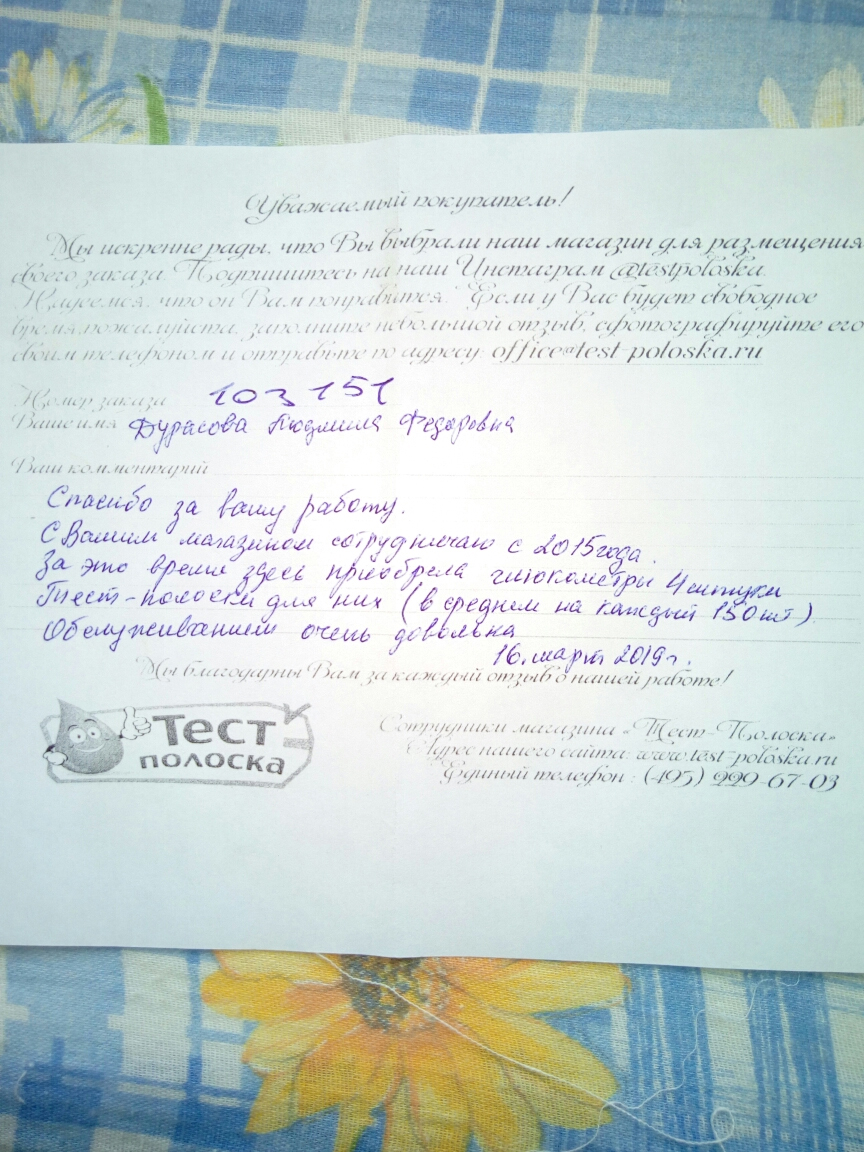 Уважаемый покупатель!
Мы искренне рады, что Вы выбрали наш магазин для размещения
своего заказа. Подпишитесь на наш Инстаграм @testpoloska.
Надеемся, что он Вам понравится! Если у Вас будет свободное
время, пожалуйста, заполните небольшой отзыв, сфотографируйте его
своим телефоном и отправьте по адресу: office@test-poloska.ru
Номер заказа 103151
Ваше имя Дурасова Людмила Федоровна
Ваш комментарий
Спасибо за вашу работу.
С Вашим магазином сотрудничаю с 2015 года.
За это время здесь приобрела глюкометры 4 штуки
Тест-полоски для них (в среднем на каждый 150 шт).
Обслуживанием очень довольна
16. март 2019 г.
Мы благодарны Вам за каждый отзыв о нашей работе!
Тест
полоска
Сотрудники магазина «Тест-Полоска»
Адрес нашего сайта: www.test-poloska.ru
Единый телефон : (495) 229-67-03